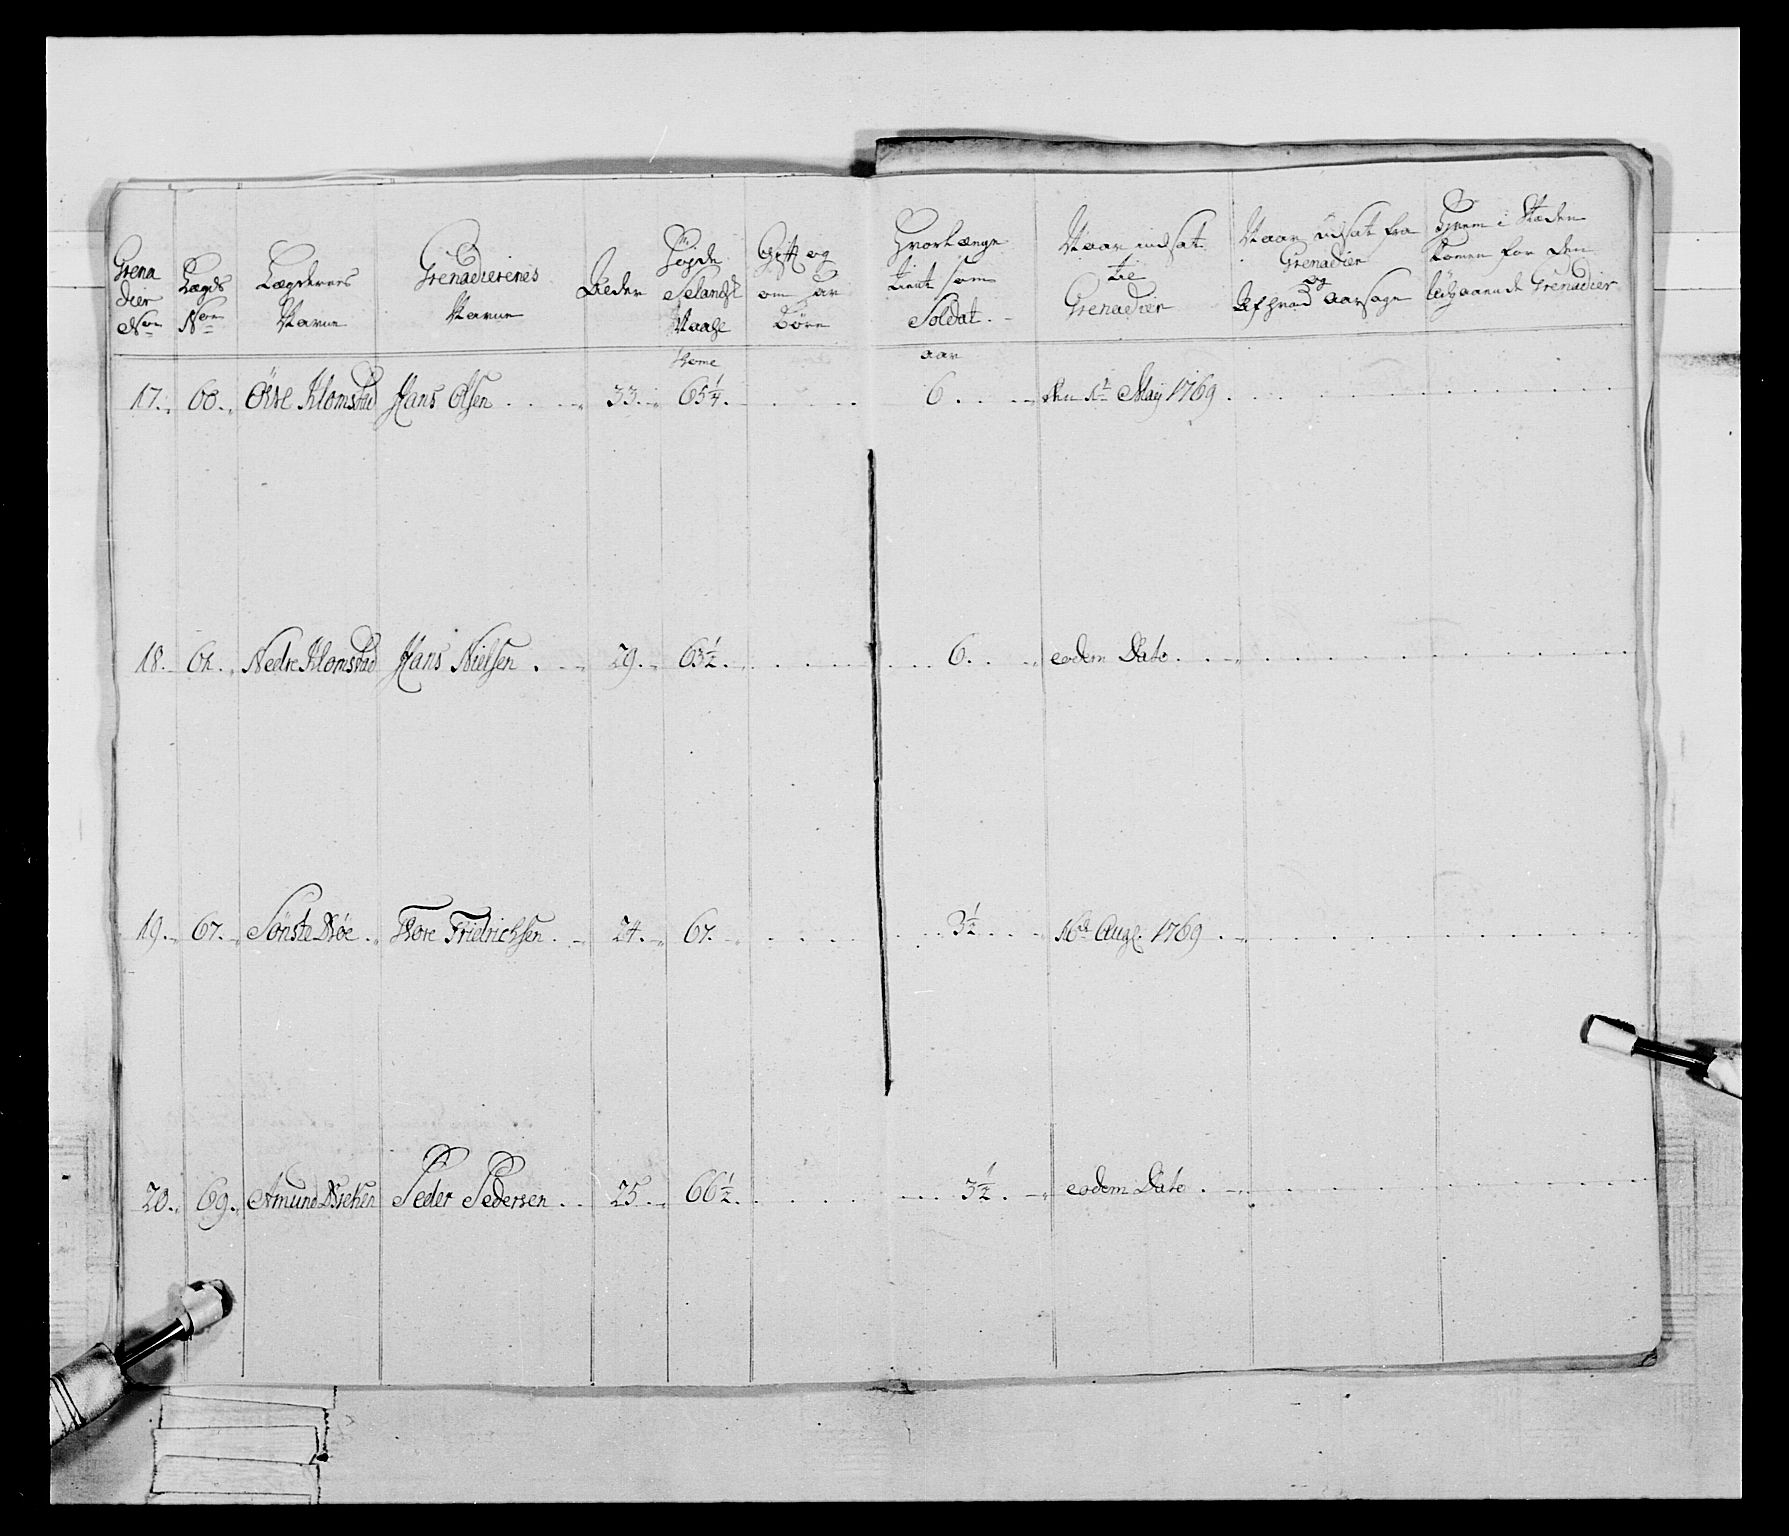 Grena dier Nro
Lægds Nro
Lægdernes Navne
Grenadierenes Navne
Alder
Høyde Selandsk Maal
Gift og om har Børn
Hvorlænge tient som Soldat.
Naar indsat til Grenadier
Naar udsat fra Grenadier og Af hvad Aarsage
Hvem i Stæden komen for den udgaaende Grenadier
Tomme
aar
17. 60. Øvre Klomstad Hans Olsen 33. 65 1/4. 6. den 1te May 1769
18. 61. Nedre Klomstad Hans Nielsen 29. 63 1/2. 6. eodem Dato
19. 67. Sønste Bøe Tore Friedrichsen 24. 67. 3 1/2 16de Aug. 1769
20. 69. Amund Peder Pedersen 25. 66 1/2. 3 1/2 eodem Dato